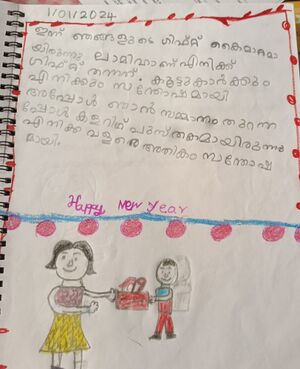 1/01/2024
ഇന്ന് ഞങ്ങളുടെ ഗിഫ്റ്റ് കൈമാറ്റമാ
യിരുന്നു. ലാമിഹാണ് എനിക്ക്
ഗിഫ്റ്റ് തന്നത്. കൂട്ടുകാർക്കും
എനിക്കും സന്തോഷമായി
അപ്പോൾ ഞാൻ സമ്മാനം തുറന്ന
പ്പോൾ കളറിങ് പുസ്തകമായിരുന്നു
എനിക്ക് വളരെ അതികം സന്തോഷ
മായി.
Happy New Year